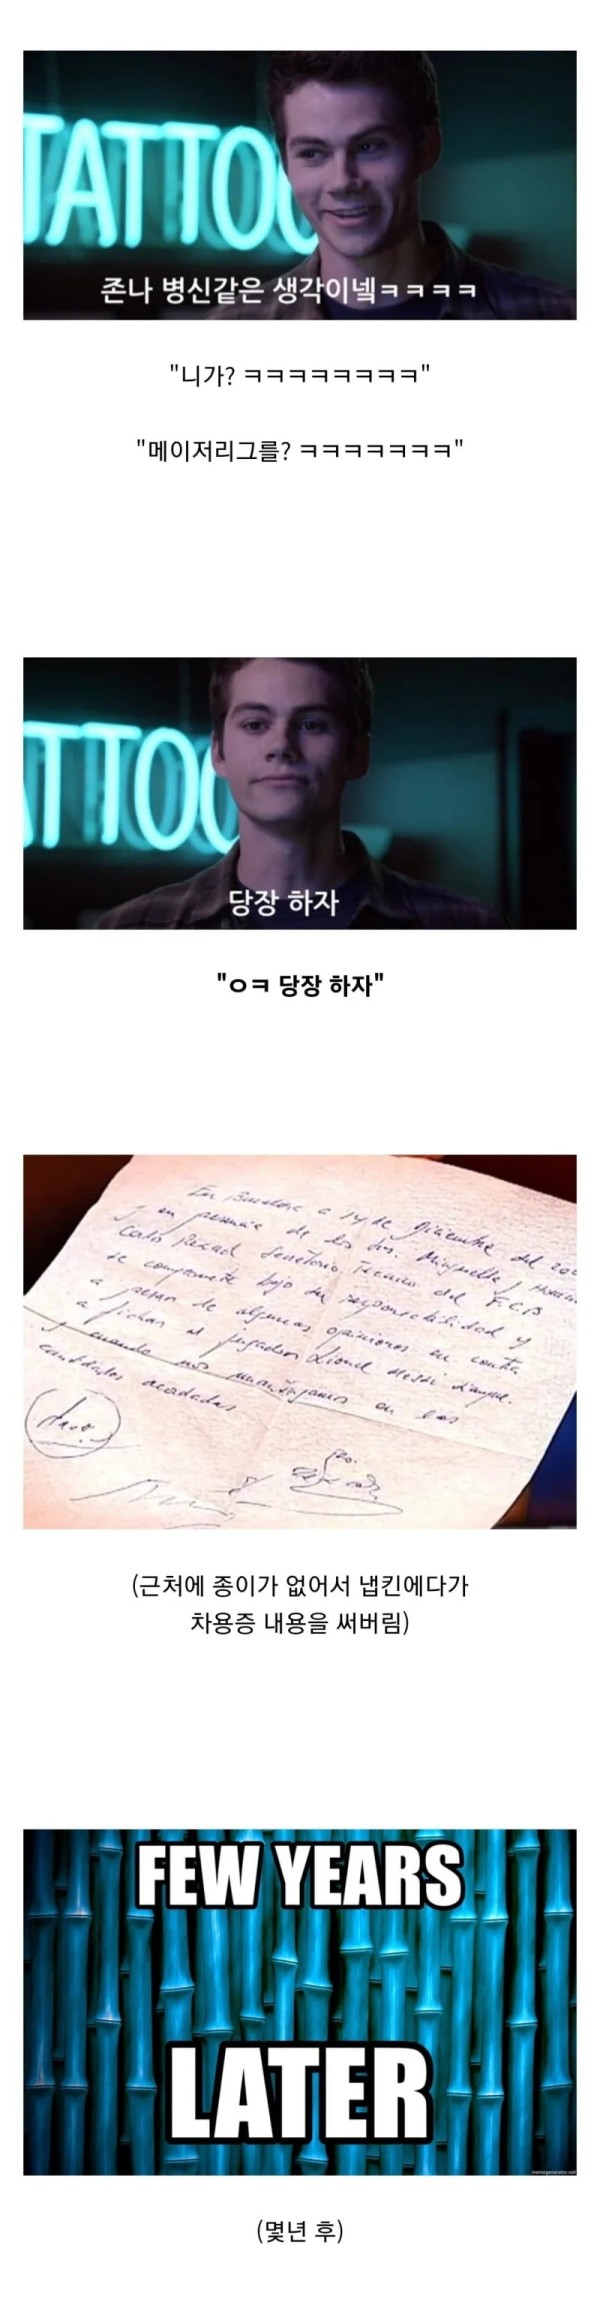 TATTOO
존나 병신같은 생각이넼ㅋㅋㅋㅋ
"니가? ㅋㅋㅋㅋㅋㅋㅋㅋ"
"메이저리그를? ㅋㅋㅋㅋㅋㅋㅋ"
ATTOO
당장 하자
"ㅇㅋ 당장 하자"
En Barcelona a 14 de diciembre del 20
y en presencia de los Sres. Minguella y
Carlos Rexach Secretario Técnico del F.C.B
se compromete bajo su responsabilidad y
a pesar de algunas opiniones en contra
a fichar al jugador Lionel Messi
y cuando nos mantengamos en las
cantidades acordadas
(근처에 종이가 없어서 냅킨에다가
차용증 내용을 써버림)
FEW YEARS
LATER
memegenerator.net
(몇년 후)